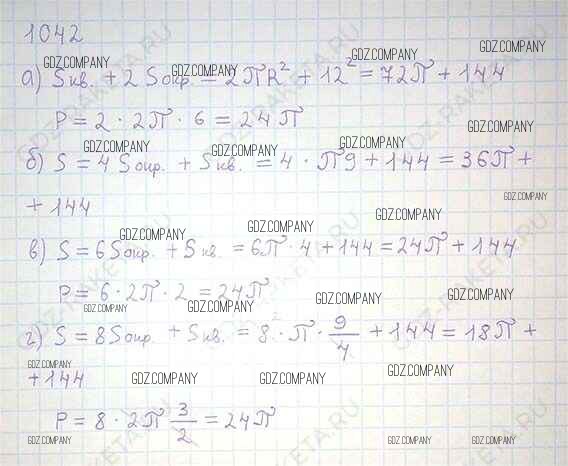 1042
GDZ.COMPANY GDZ.COMPANY GDZ.COMPANY GDZ.COMPANY
а) Sкв. + 2 Sокр. = 2πR² + 12² = 72π + 144
P = 2 · 2π · 6 = 24π
GDZ.COMPANY GDZ.COMPANY GDZ.COMPANY GDZ.COMPANY
б) S = 4 Sокр. + Sкв. = 4 · π9 + 144 = 36π +
GDZ.COMPANY
+ 144
GDZ.COMPANY GDZ.COMPANY GDZ.COMPANY
в) S = 6Sокр. + Sкв. = 6π · 4 + 144 = 24π + 144
P = 6 · 2π · 2 = 24π
GDZ.COMPANY GDZ.COMPANY GDZ.COMPANY GDZ.COMPANY
г) S = 8Sокр. + Sкв. = 8 · π · 9/4 + 144 = 18π +
GDZ.COMPANY
+ 144
GDZ.COMPANY GDZ.COMPANY GDZ.COMPANY
P = 8 · 2π 3/2 = 24π
GDZ.COMPANY GDZ.COMPANY GDZ.COMPANY
GDZ-RAKETA.RU